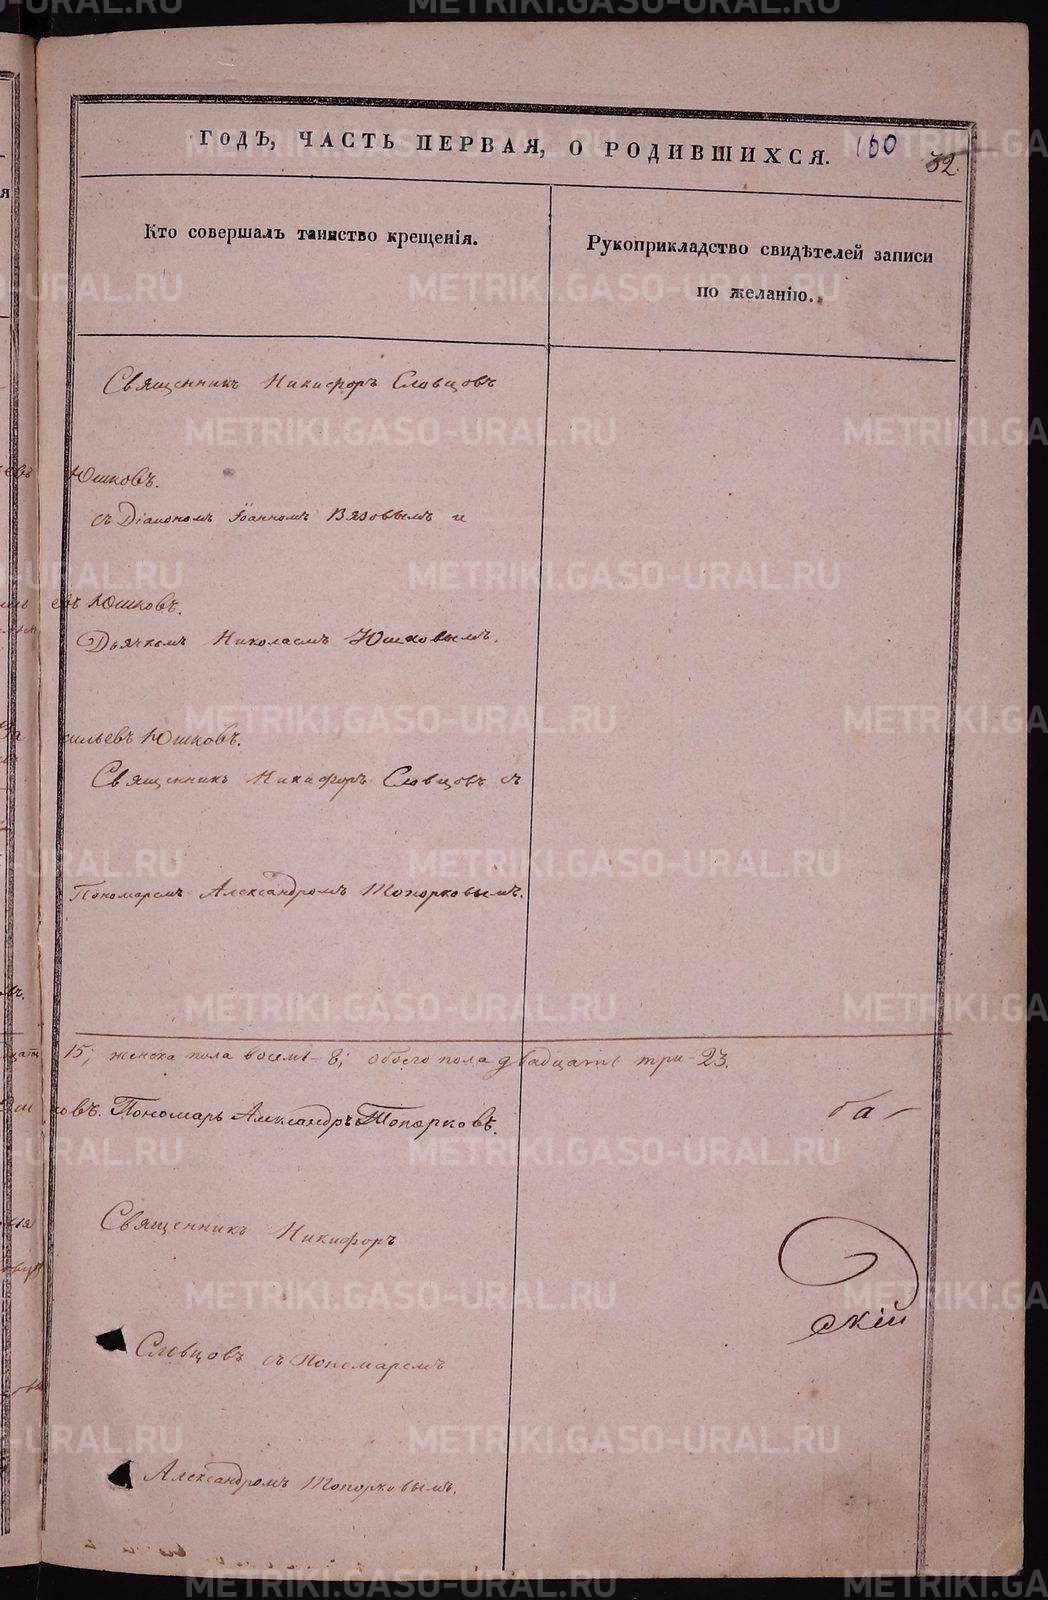 ГОДЪ, ЧАСТЬ ПЕРВАЯ, О РОДИВШИХСЯ. 160 32.
Кто совершалъ таинство крещенія.
Рукоприкладство свидѣтелей записи
по желанію.
Священникъ Никифоръ Словцовъ
Юшковъ.
съ Діакономъ Іоанномъ Вязовымъ и
евъ Юшковъ.
Дьячкомъ Николаемъ Юшковымъ.
сильевъ Юшковъ.
Священникъ Никифоръ Словцовъ съ
Пономаремъ Александромъ Топорковымъ.
15; женска пола восемь-8; обоего пола двадцать три-23.
ковъ. Пономарь Александръ Топорковъ.
Священникъ Никифоръ
скій
Словцовъ съ Пономаремъ
Александромъ Топорковымъ.
METRIKI.GASO-URAL.RU